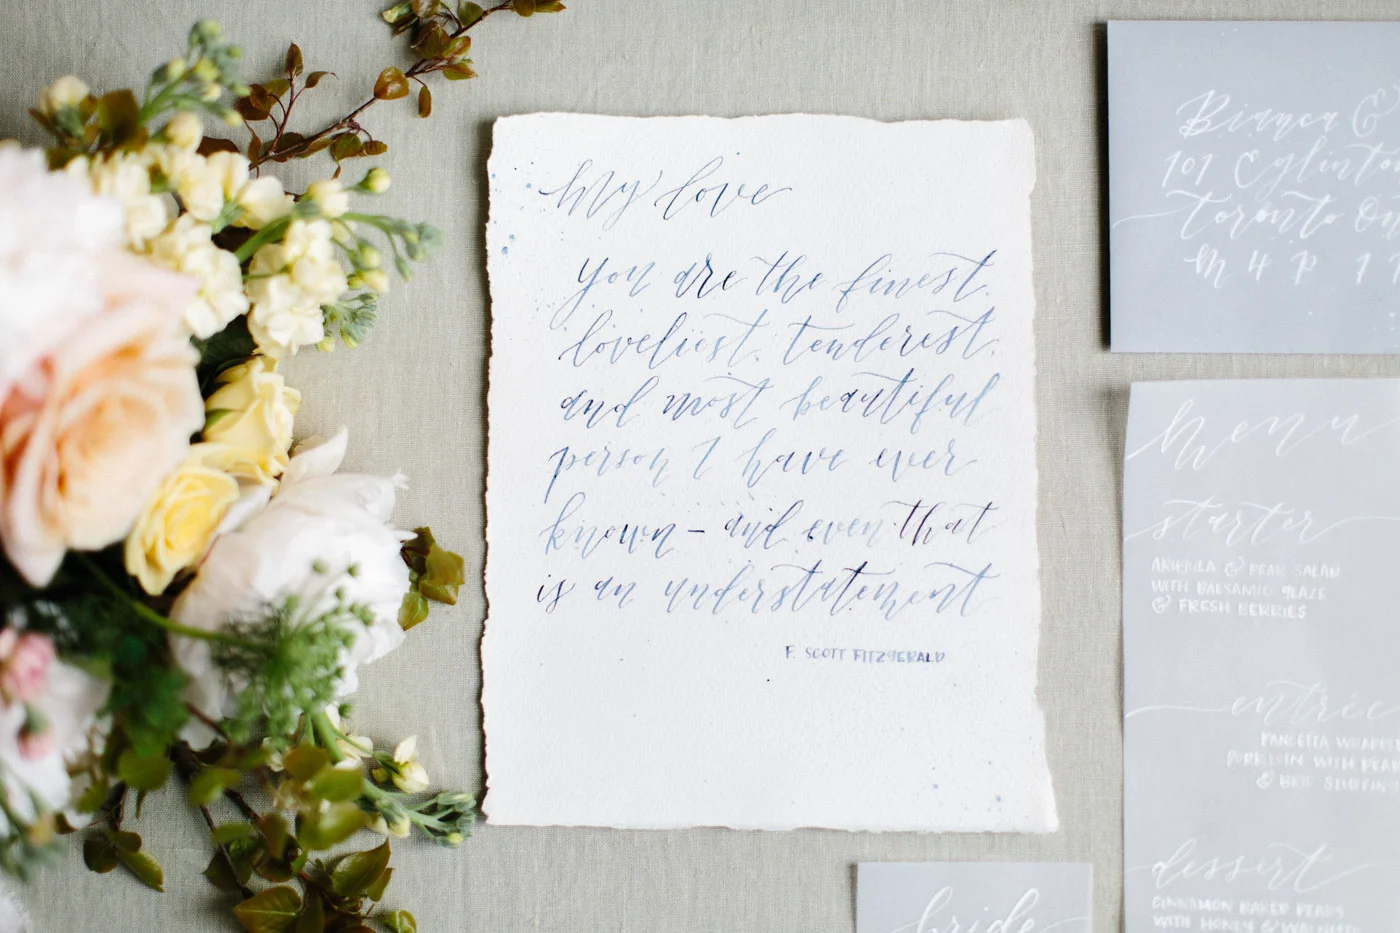 My love
you are the finest,
loveliest, tenderest,
and most beautiful
person I have ever
known – and even that
is an understatement
F. SCOTT FITZGERALD
Bianca &
101 Eglinto
Toronto On
M 4 P 1
menu
starter
ARUGULA & PEAR SALAD
WITH BALSAMIC GLAZE
& FRESH BERRIES
entrée
PANCETTA WRAPPED
PORK LOIN WITH PEAR
& BRIE STUFFING
dessert
CINNAMON BAKED PEARS
WITH HONEY & WALNUTS
bride